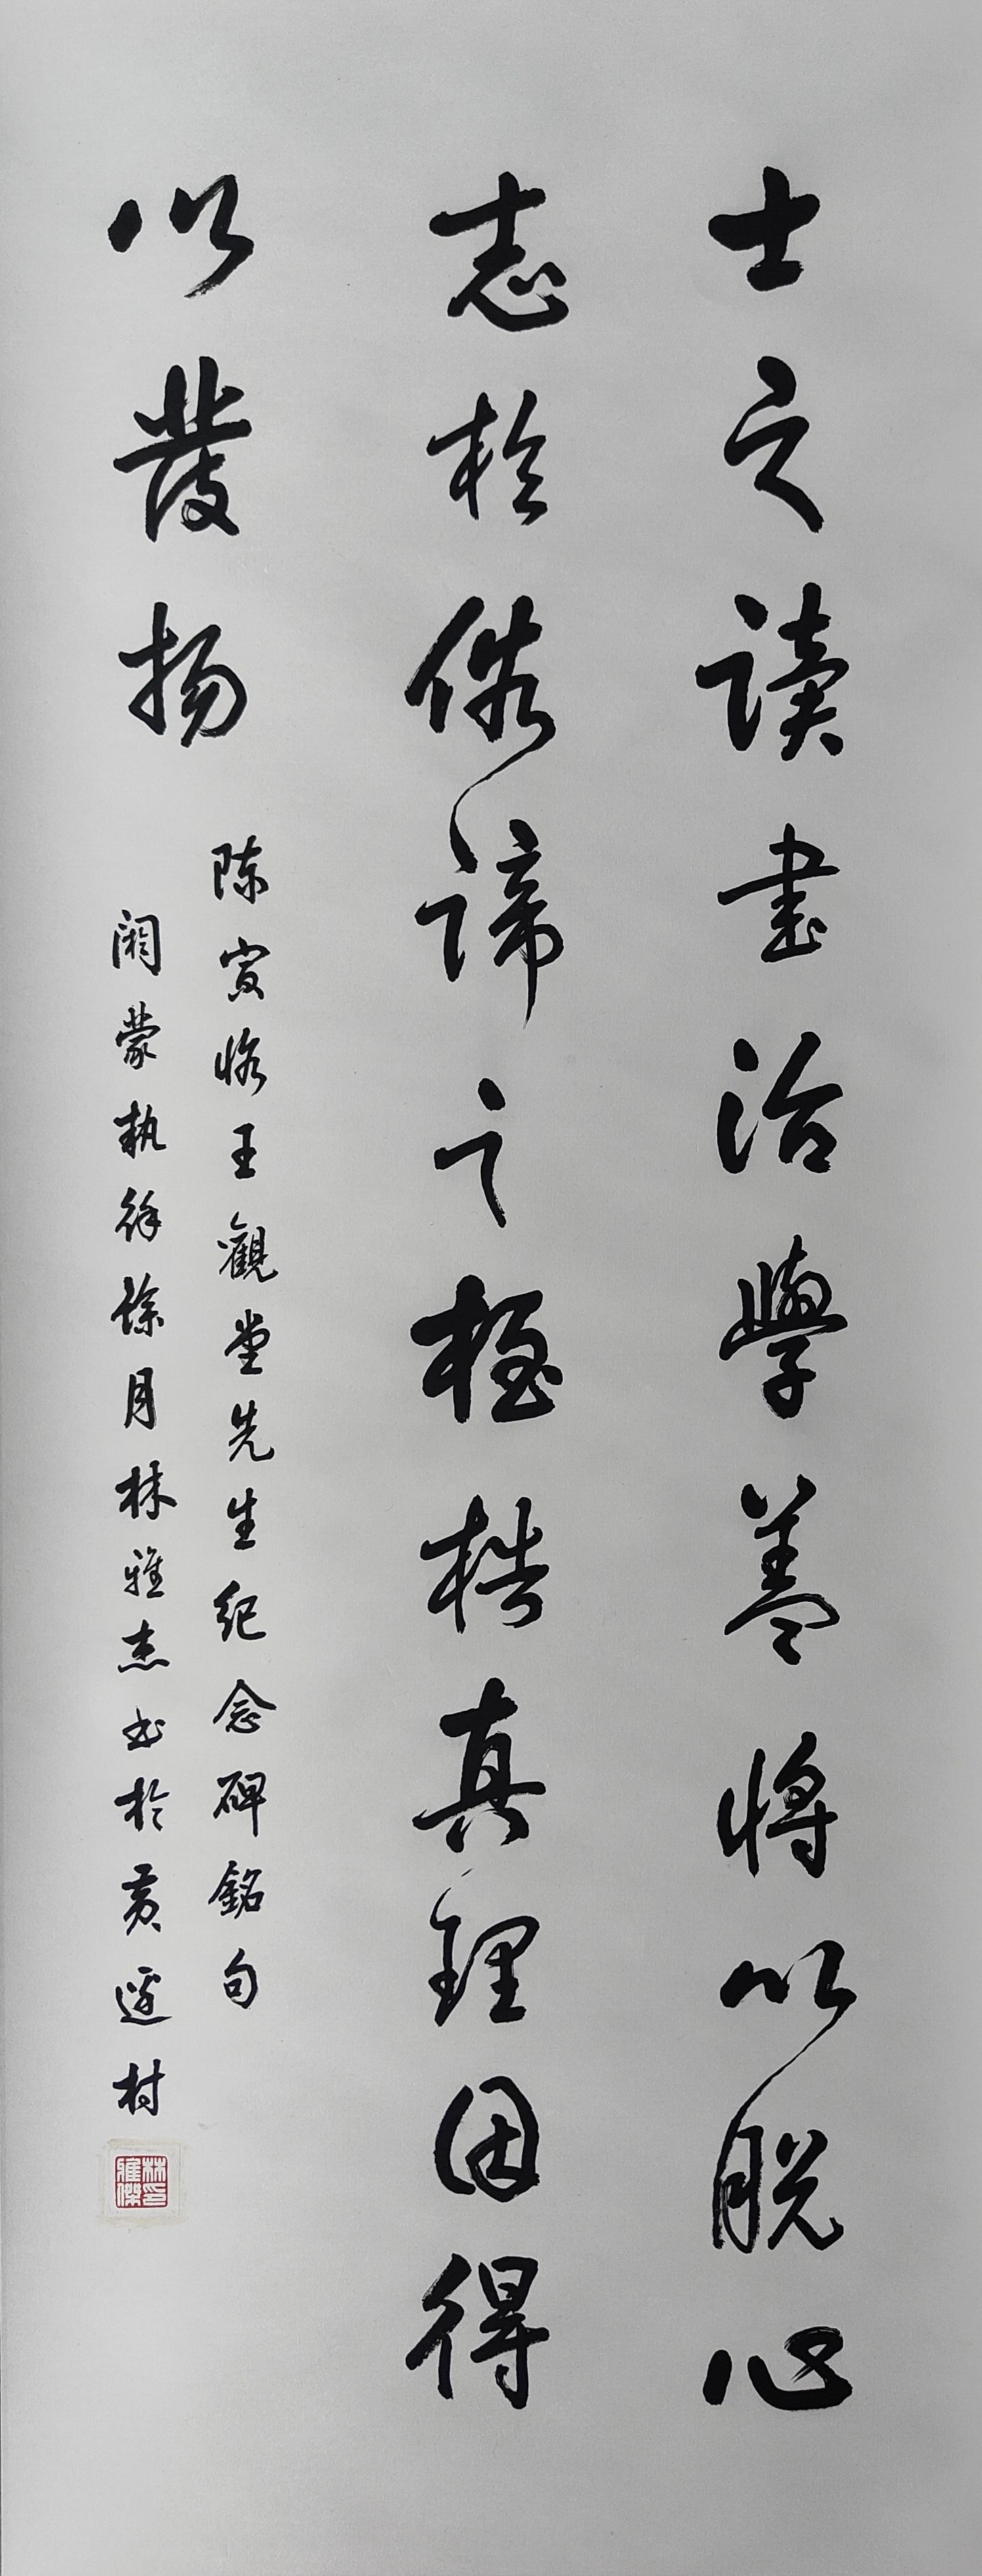 士之读書治學蓋将以脱心
志於俗諦之桎梏真理因得
以發扬
陈寅恪王觀堂先生纪念碑銘句
阏蒙执徐涂月林雅杰书於黄邊村
林雅傑印